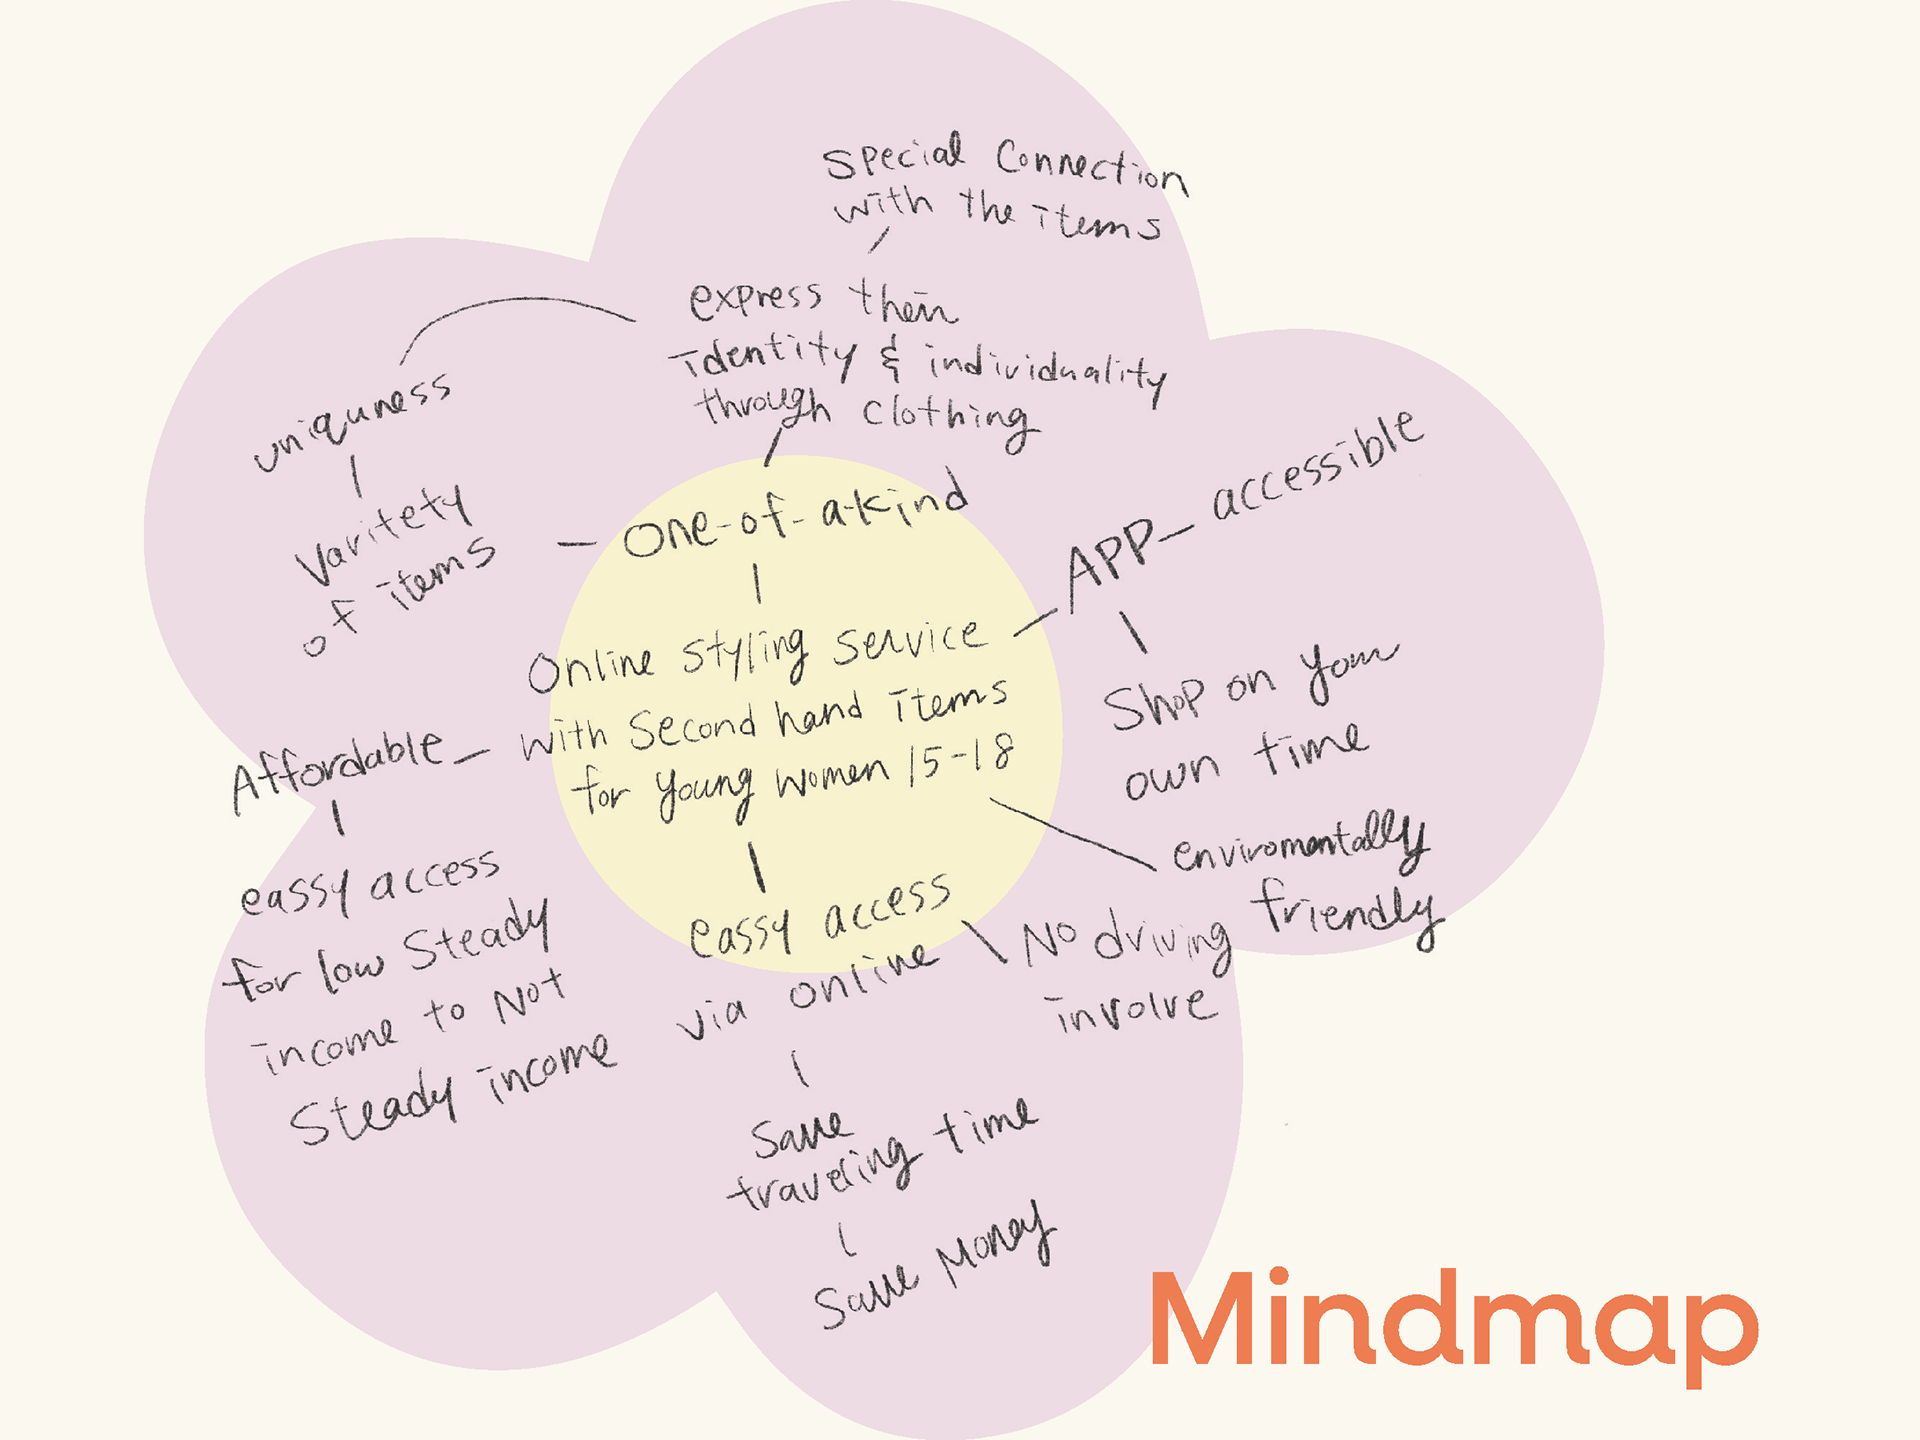 Special Connection
with the items
express their
identity & individuality
through clothing
uniquness
Varitety
of items
One-of-a-kind
APP - accessible
Shop on your
own time
Online styling service
with second hand items
for young women 15-18
Affordable
eassy access
for low steady
income to Not
steady income
enviromentally
friendly
eassy access
via online
No driving
involve
Save
traveling time
Save Money
Mindmap